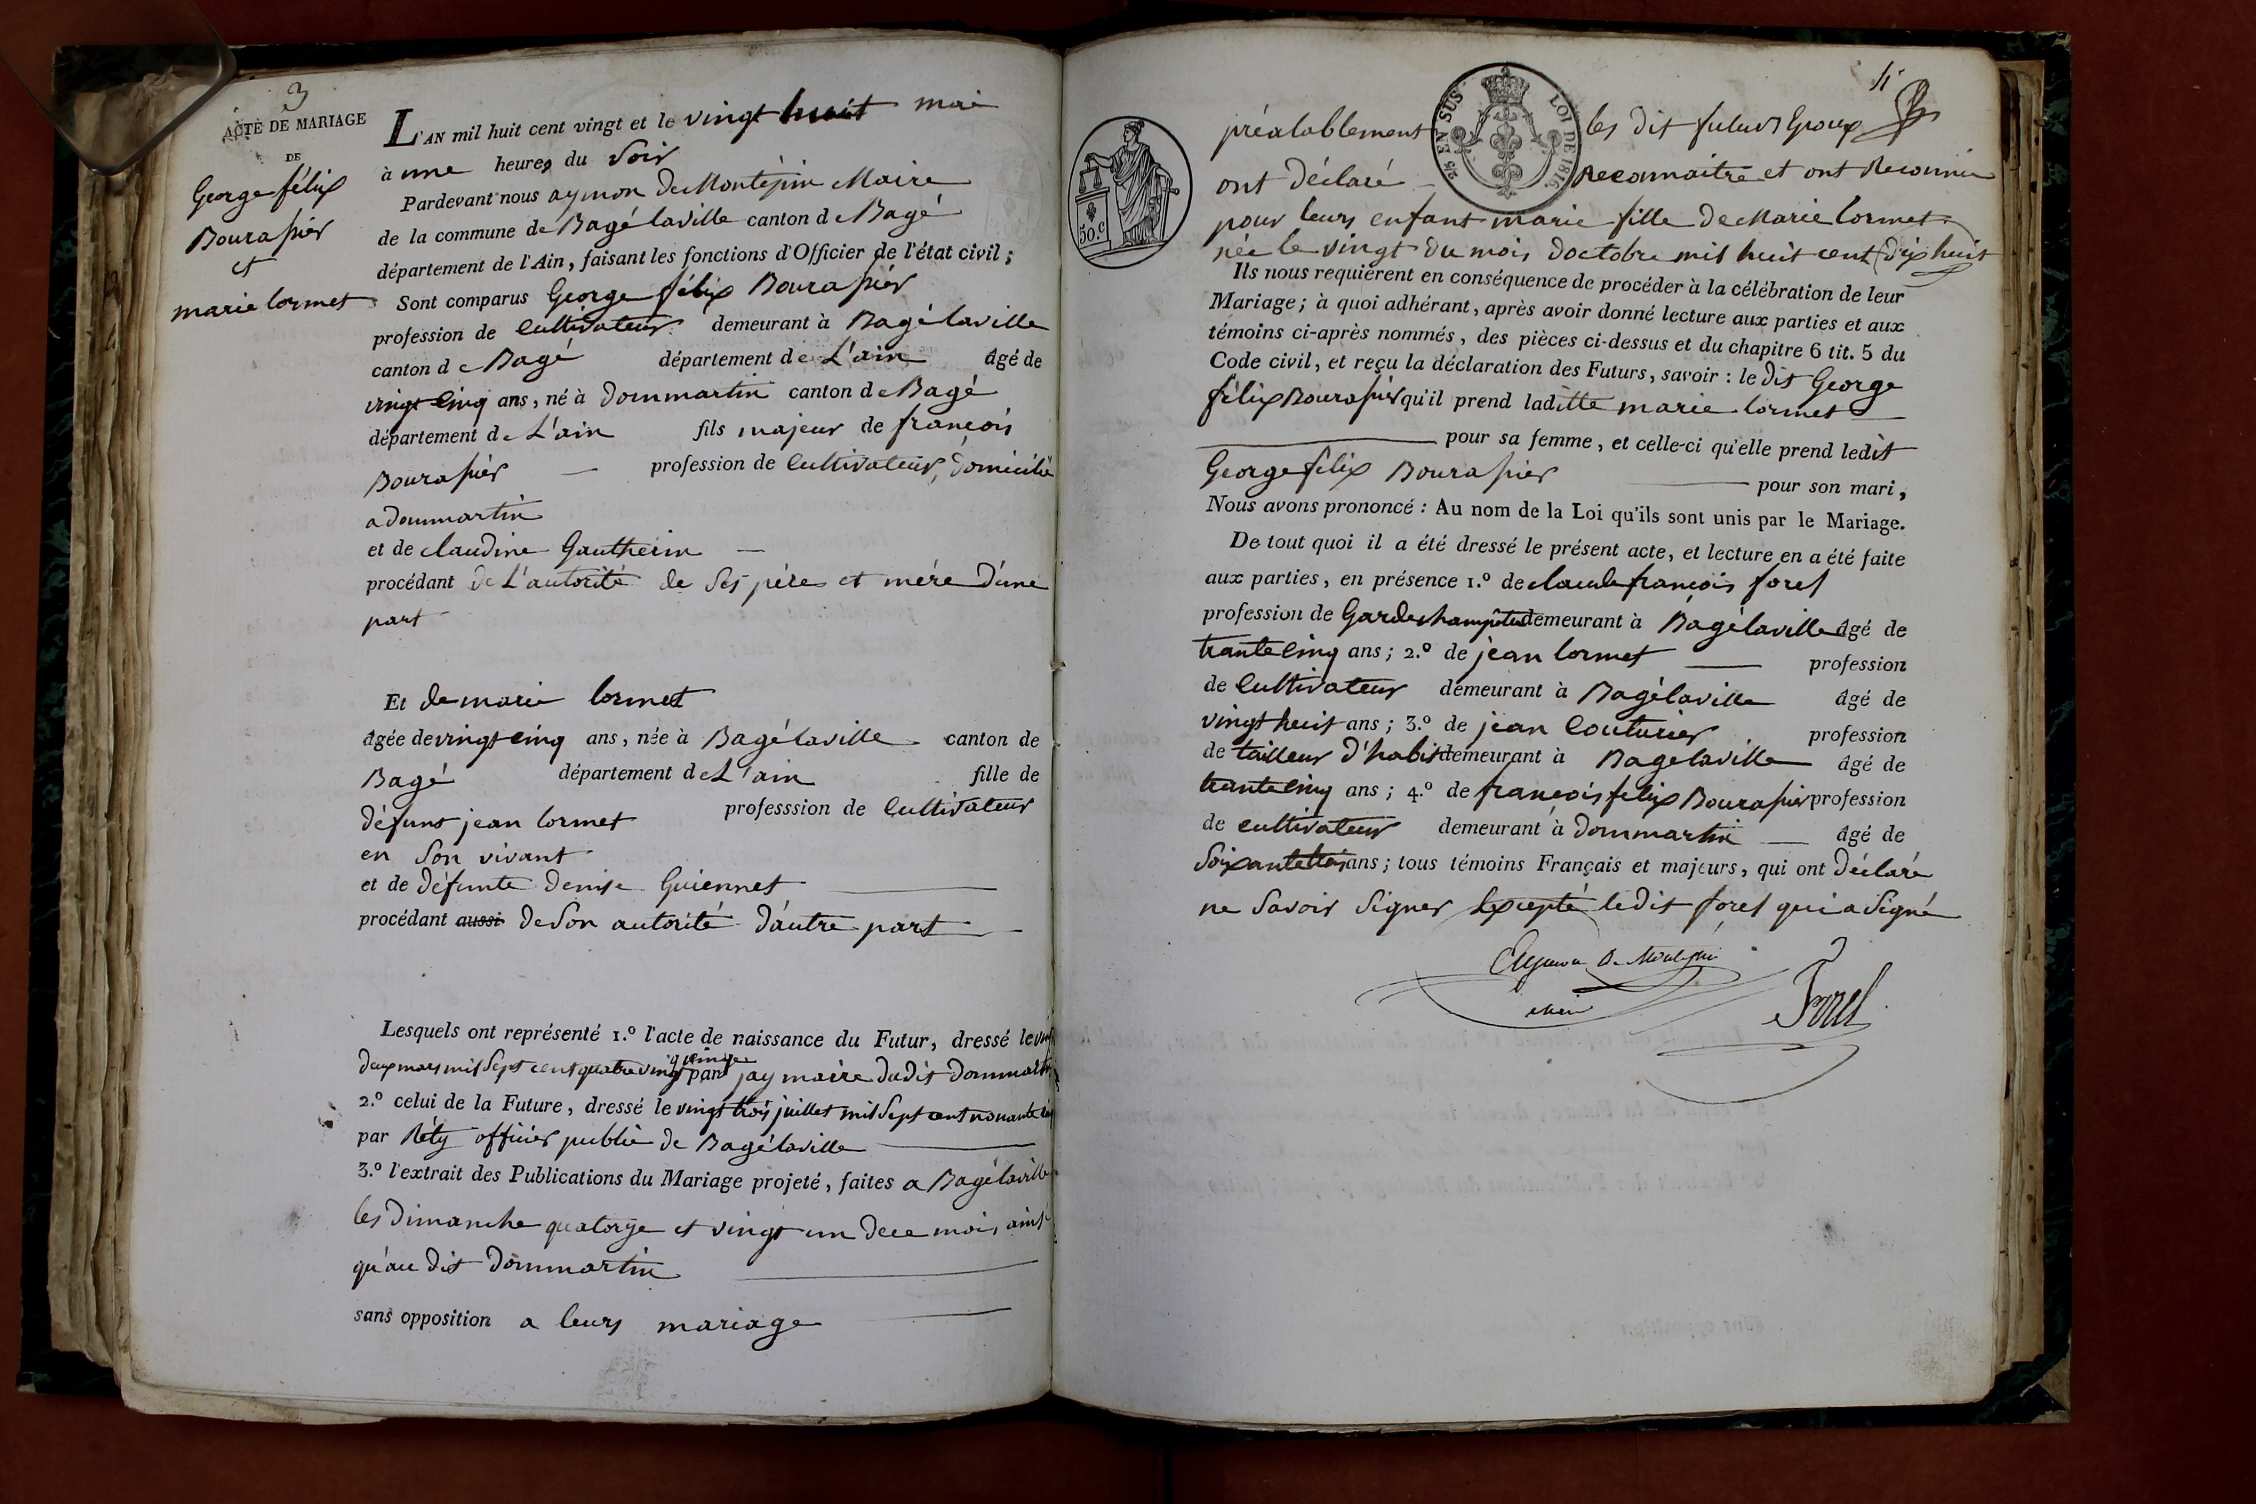 3
ACTE DE MARIAGE
DE
George félix
Bourassier
et
marie lormet
L'AN mil huit cent vingt et le vingt huit mai
à une heures du Soir
Pardevant nous aymon De Montépin Maire
de la commune de Bagé laville canton de Bagé
département de l'Ain, faisant les fonctions d'Officier de l'état civil;
Sont comparus George félix Bourassier
profession de Cultivateur demeurant à Bagé laville
canton de Bagé département de L'ain âgé de
vingt Cinq ans, né à Dommartin canton de Bagé
département de L'ain fils majeur de françois
Bourassier profession de Cultivateur, domicilié
a dommartin
et de claudine Gautheim
procédant de L'autorité de Ses père et mère D'une
part
Et de marie lormet
âgée de vingt cinq ans, née à Bagé laville canton de
Bagé département de L'ain fille de
défunt jean lormet professsion de Cultivateur
en Son vivant
et de défunte Denise Guiennet
procédant aussi de Son autorité d'autre part
Lesquels ont représenté 1.º l'acte de naissance du Futur, dressé le
Deux mars mil Sept cent quatre vingt quinze par jay maire du dit Dommartin
2.º celui de la Future, dressé le vingt trois juillet mil Sept cent nonante
par Réty officier public de Bagé laville
3.º l'extrait des Publications du Mariage projeté, faites a Bagé laville
les Dimanche quatorze et vingt un de ce mois, ainsi
qu'au dit Dommartin
sans opposition a leurs mariage
50.C
25 EN SUS
LOI DE 1816.
préalablement les dit futurs Epoux
ont déclaré Reconnaitre et ont Reconnu
pour leurs enfant marie fille de Marie lormet
née le vingt du mois doctobre mil huit cent dix huit
Ils nous requièrent en conséquence de procéder à la célébration de leur
Mariage; à quoi adhérant, après avoir donné lecture aux parties et aux
témoins ci-après nommés, des pièces ci-dessus et du chapitre 6 tit. 5 du
Code civil, et reçu la déclaration des Futurs, savoir : le dit George
félix Bourassier qu'il prend laditte marie lormet
pour sa femme, et celle-ci qu'elle prend ledit
George félix Bourassier pour son mari,
Nous avons prononcé : Au nom de la Loi qu'ils sont unis par le Mariage.
De tout quoi il a été dressé le présent acte, et lecture en a été faite
aux parties, en présence 1.º de claude françois forel
profession de Garde champêtre demeurant à Bagé laville âgé de
trante cinq ans; 2.º de jean lormet profession
de Cultivateur demeurant à Bagé laville âgé de
vingt huit ans; 3.º de jean Couturier profession
de tailleur d'habis demeurant à Bagé laville âgé de
trante cinq ans; 4.º de françois felix Bourassier profession
de cultivateur demeurant à Dommartin âgé de
Soixante trois ans; tous témoins Français et majeurs, qui ont déclaré
ne Savoir Signer Excepté le dit forel qui a Signé
Aymon De Montepin
Maire
Forel